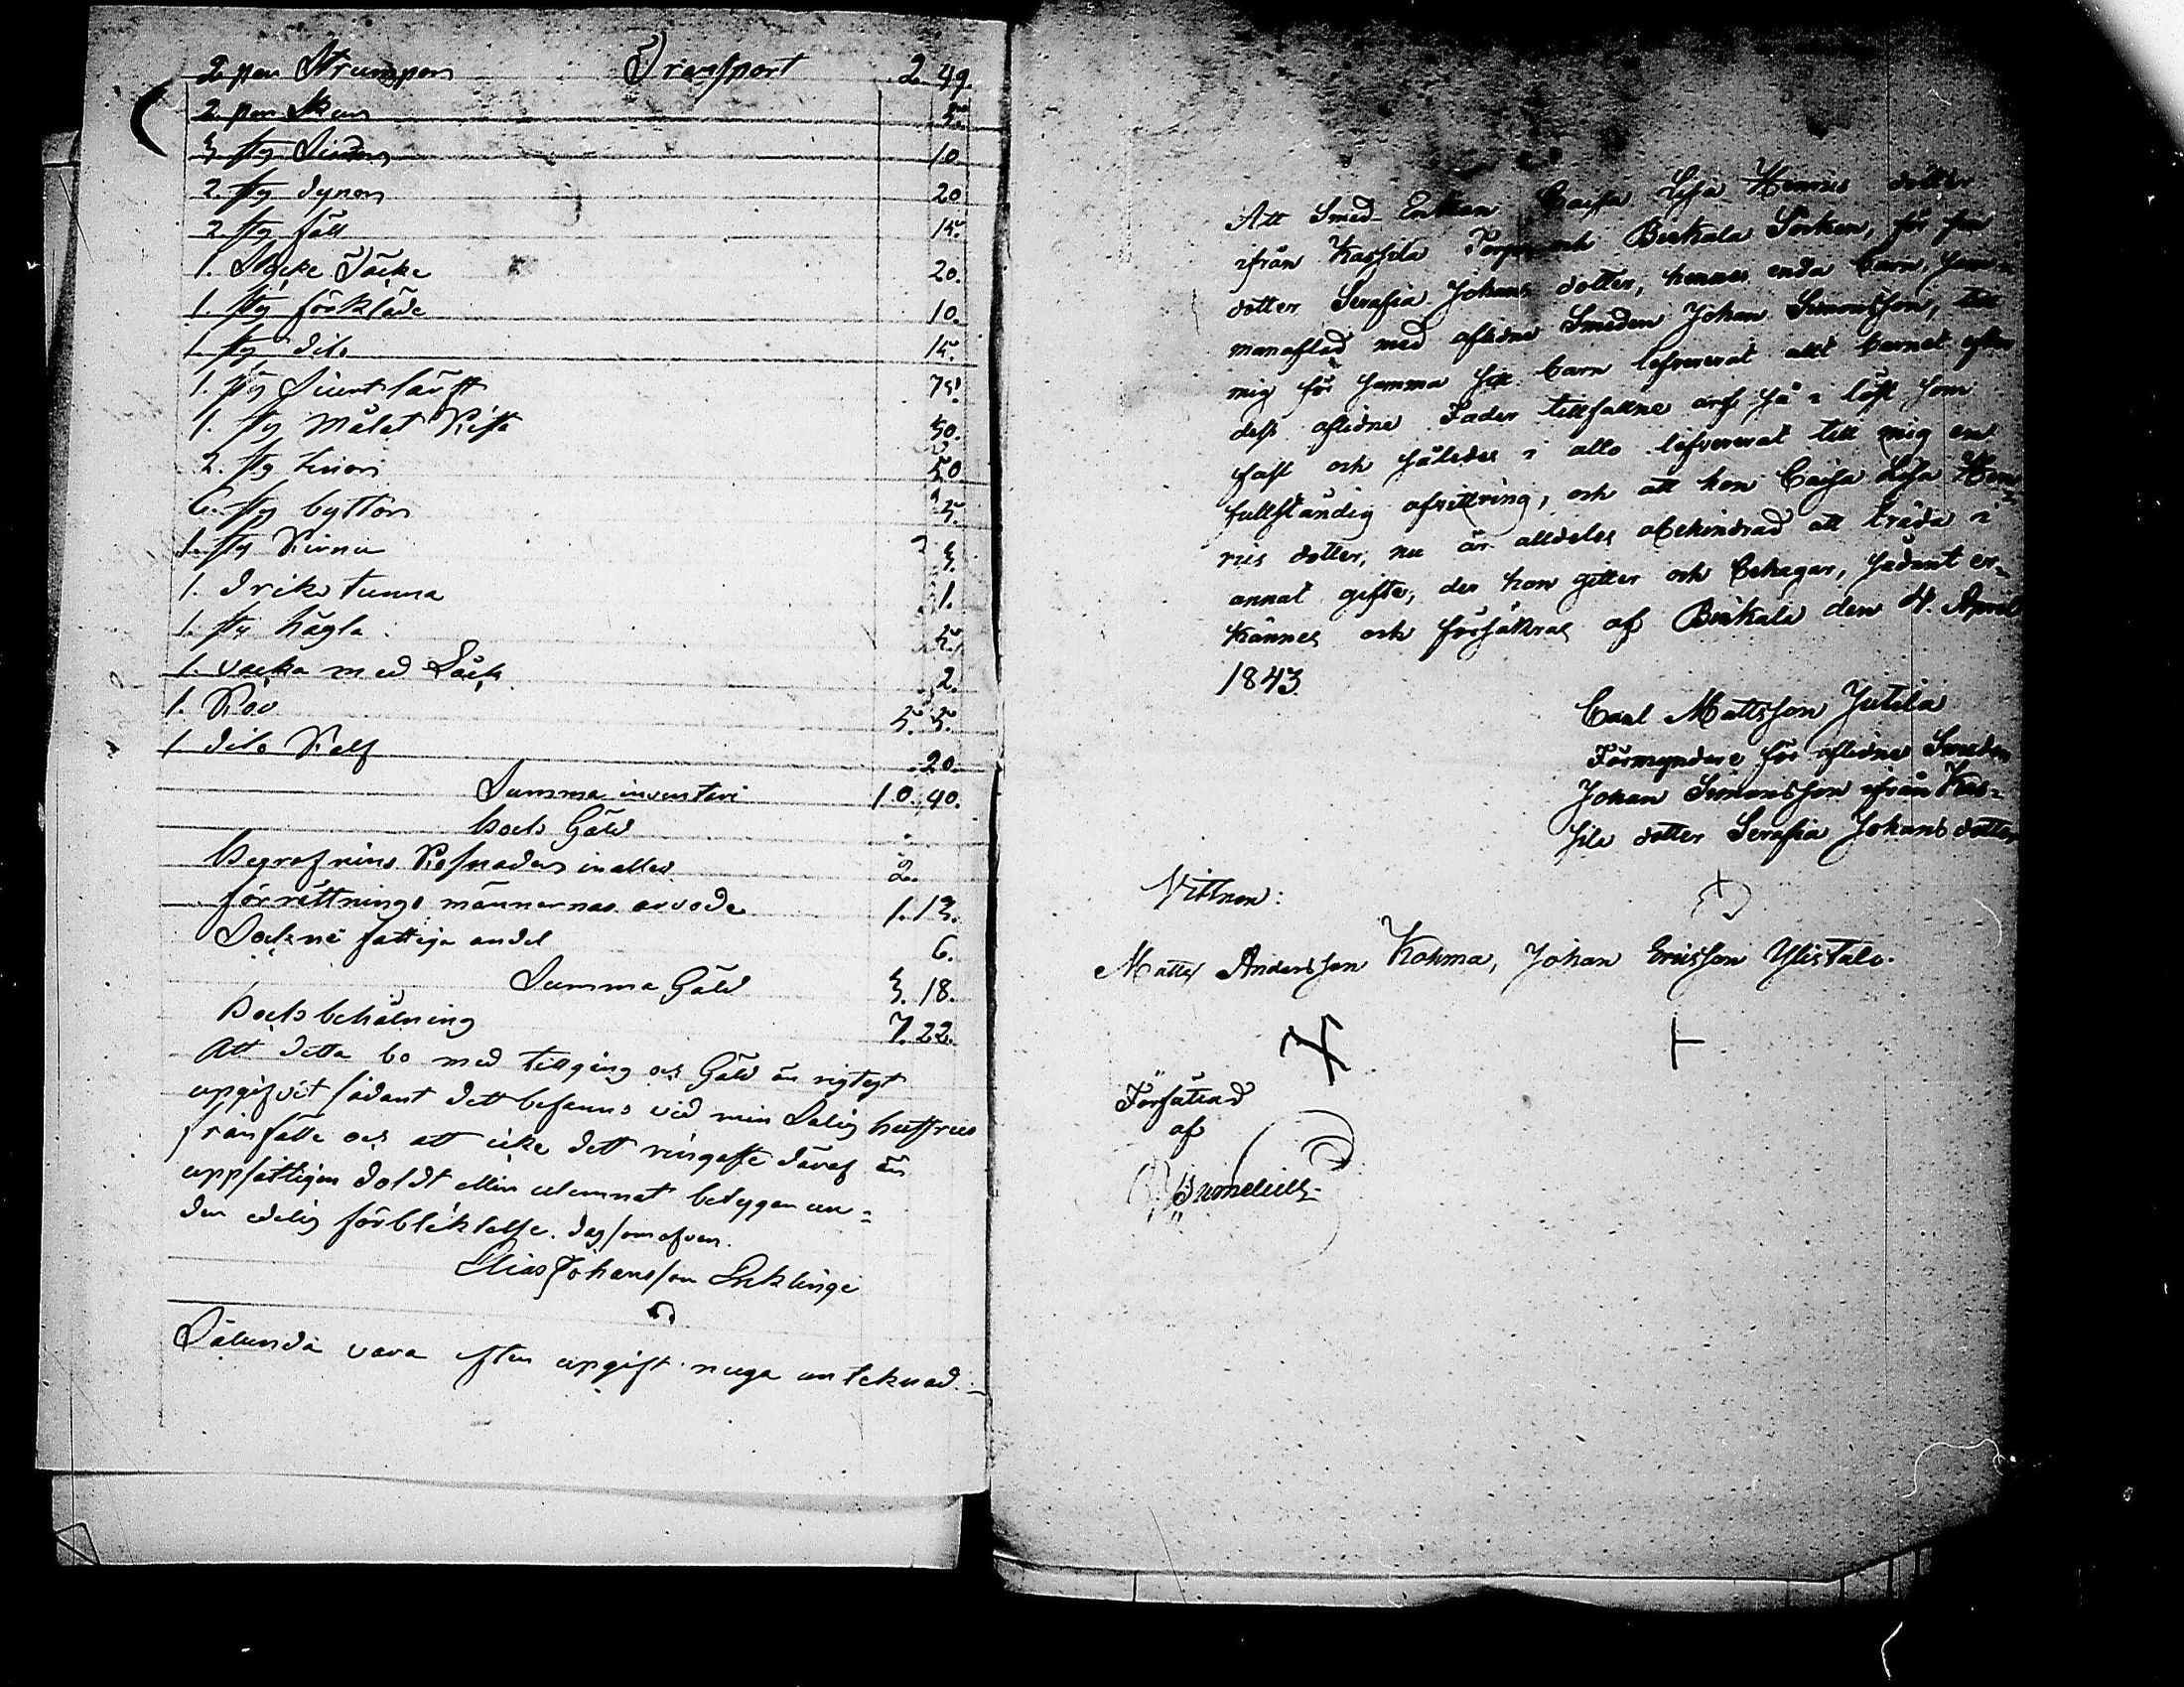 2 par Strumpor Transport 2. 49.
2 par Skor 5.
3 sty 10
2. sty dynor 20
2 sty fäll 15.
1. Täcke 20.
1. sty förkläde 10.
1 sty dito 15.
1. sty lärft 75.
1. sty målat Kista 50.
2. sty tinor 50
6. sty byttor 5.
1. sty Kirnu 3.
1. driks tunna 1.
1. sty hägla 5.
1. vacka med Säck 2.
1. Ko 5. 5.
1 dito Kalf 20.
Summa inventari 10. 40.
boets Gäld
begrafnins Kosnader in alles 2.
förrättnings männernas arvode 1. 12.
Sockne fattiga andel 6.
Summa Gäld 3. 18.
boets behålning 7. 22.
Att detta bo med tillgång och Gäld är rigtigt
upgifvet sådant dett befanns vid min Salig hustrus
frånfälle och att icke dett ringaste däraf är
uppsåtligen doldt eller utemnat betygen un=
der edelig förbliktelse. dag som ofvan.
Elias Johansson Enklinge
Sålunda vara efter upgift noga antecknad.
Att Smed Enkan Caisa Lisa Henrics dotter
ifrån Kassila Torp och Birkala Socken, för sin
dotter Serafia Johans dotter, hennes enda barn, sam=
manaflad med aflidne Smeden Johan Simonsson, till
mig för samma sitt barn lefvererat allt barnet efter
dess aflidne Fader tillfallne arf så i löst som
fast och således i allo lefvererat till mig en
fullständig afvittring, och att hon Caisa Lisa Hen=
rics dotter, nu är alldeles obehindrad att träda i
annat gifte, der hon gitter och behagar, sådant er=
kännes och försäkras af Birkala den 4. April
1843.
Carl Mattsson Jutila
Förmyndare för aflidne Smeden
Johan Simonsson ifrån Kas=
sila dotter Serafia Johans dotter
Vittnen:
Matts Andersson Kohma, Johan Ericsson Ylistalo.
Författad
af